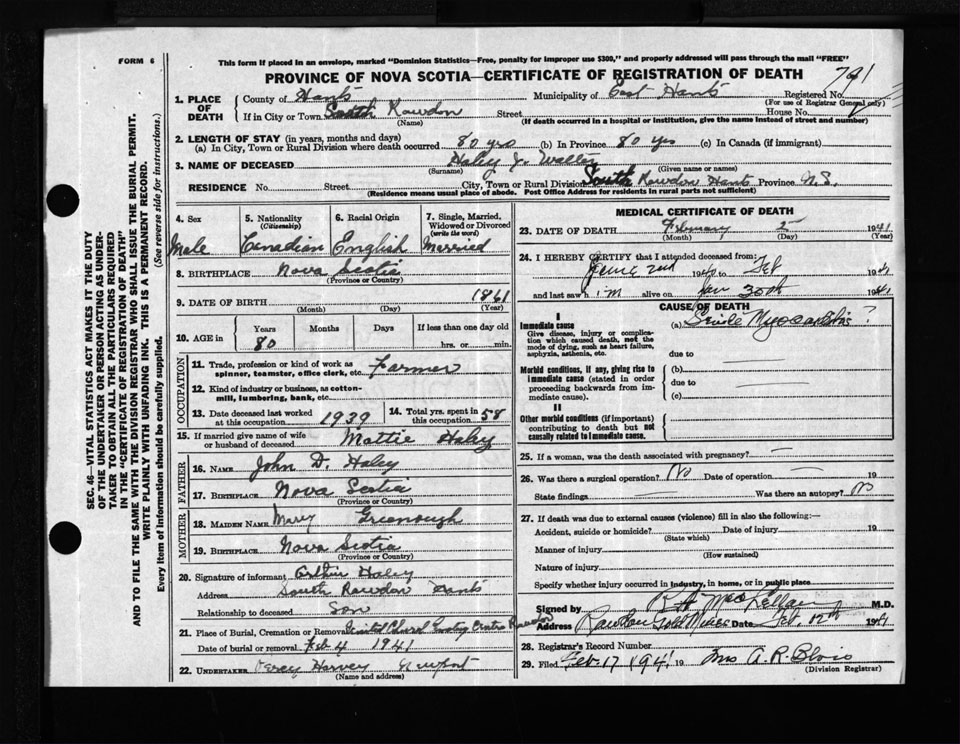 FORM 6
This form if placed in an envelope, marked "Dominion Statistics—Free, penalty for improper use $300," and properly addressed will pass through the mail "FREE"
PROVINCE OF NOVA SCOTIA—CERTIFICATE OF REGISTRATION OF DEATH
1. PLACE OF DEATH
County of Hants Municipality of East Hants Registered No. 791
(For use of Registrar General only)
If in City or Town South Rawdon Street House No.
(Name) (If death occurred in a hospital or institution, give the name instead of street and number)
2. LENGTH OF STAY (in years, months and days)
(a) In City, Town or Rural Division where death occurred 80 yrs (b) In Province 80 yrs (c) In Canada (if immigrant)
3. NAME OF DECEASED Haley J.
(Surname) (Given name or names)
RESIDENCE No. Street City, Town or Rural Division South Rawdon Hants Province N.S.
(Residence means usual place of abode. Post Office Address for residents in rural parts not sufficient)
4. Sex
Male
5. Nationality
(Citizenship)
Canadian
6. Racial Origin
English
7. Single, Married, Widowed or Divorced
(write the word)
Married
8. BIRTHPLACE Nova Scotia
(Province or Country)
9. DATE OF BIRTH 1861
(Month) (Day) (Year)
10. AGE in
Years Months Days If less than one day old
80 hrs. or min.
OCCUPATION
11. Trade, profession or kind of work as spinner, teamster, office clerk, etc. Farmer
12. Kind of industry or business, as cotton-mill, lumbering, bank, etc.
13. Date deceased last worked at this occupation 1939
14. Total yrs. spent in this occupation 58
15. If married give name of wife or husband of deceased Mattie Haley
FATHER
16. NAME John D. Haley
17. BIRTHPLACE Nova Scotia
(Province or Country)
MOTHER
18. MAIDEN NAME Mary Greenough
19. BIRTHPLACE Nova Scotia
(Province or Country)
20. Signature of informant Arthur Haley
Address South Rawdon Hants
Relationship to deceased Son
21. Place of Burial, Cremation or Removal United Church Centre Rawdon
Date of burial or removal Feb 4 1941
22. UNDERTAKER Percy Harvey Newport
(Name and address)
MEDICAL CERTIFICATE OF DEATH
23. DATE OF DEATH February 2 1941
(Month) (Day) (Year)
24. I HEREBY CERTIFY that I attended deceased from:
June 2nd 1940 to Feb 1941
and last saw him alive on Jan 30th 1941
CAUSE OF DEATH
I
Immediate cause
Give disease, injury or complication which caused death, not the mode of dying, such as heart failure, asphyxia, asthenia, etc.
(a) Senile Myocarditis ?
due to
Morbid conditions, if any, giving rise to immediate cause (stated in order proceeding backwards from immediate cause).
(b)
due to
(c)
II
Other morbid conditions (if important) contributing to death but not causally related to immediate cause.
25. If a woman, was the death associated with pregnancy?
26. Was there a surgical operation? No Date of operation 19
State findings Was there an autopsy? No
27. If death was due to external causes (violence) fill in also the following:—
Accident, suicide or homicide? Date of injury 19
(State which)
Manner of injury
(How sustained)
Nature of injury
Specify whether injury occurred in industry, in home, or in public place
Signed by M.D.
Address Rawdon Gold Mines Date Feb. 12th 1941
28. Registrar's Record Number
29. Filed Feb. 17 1941 19 Mrs A. R. Blois
(Division Registrar)
SEC. 46—VITAL STATISTICS ACT MAKES IT THE DUTY
OF THE UNDERTAKER OR PERSON ACTING AS UNDER-
TAKER TO OBTAIN ALL THE PARTICULARS REQUIRED
IN THE "CERTIFICATE OF REGISTRATION OF DEATH"
AND TO FILE THE SAME WITH THE DIVISION REGISTRAR WHO SHALL ISSUE THE BURIAL PERMIT.
WRITE PLAINLY WITH UNFADING INK. THIS IS A PERMANENT RECORD.
Every item of Information should be carefully supplied. (See reverse side for instructions.)